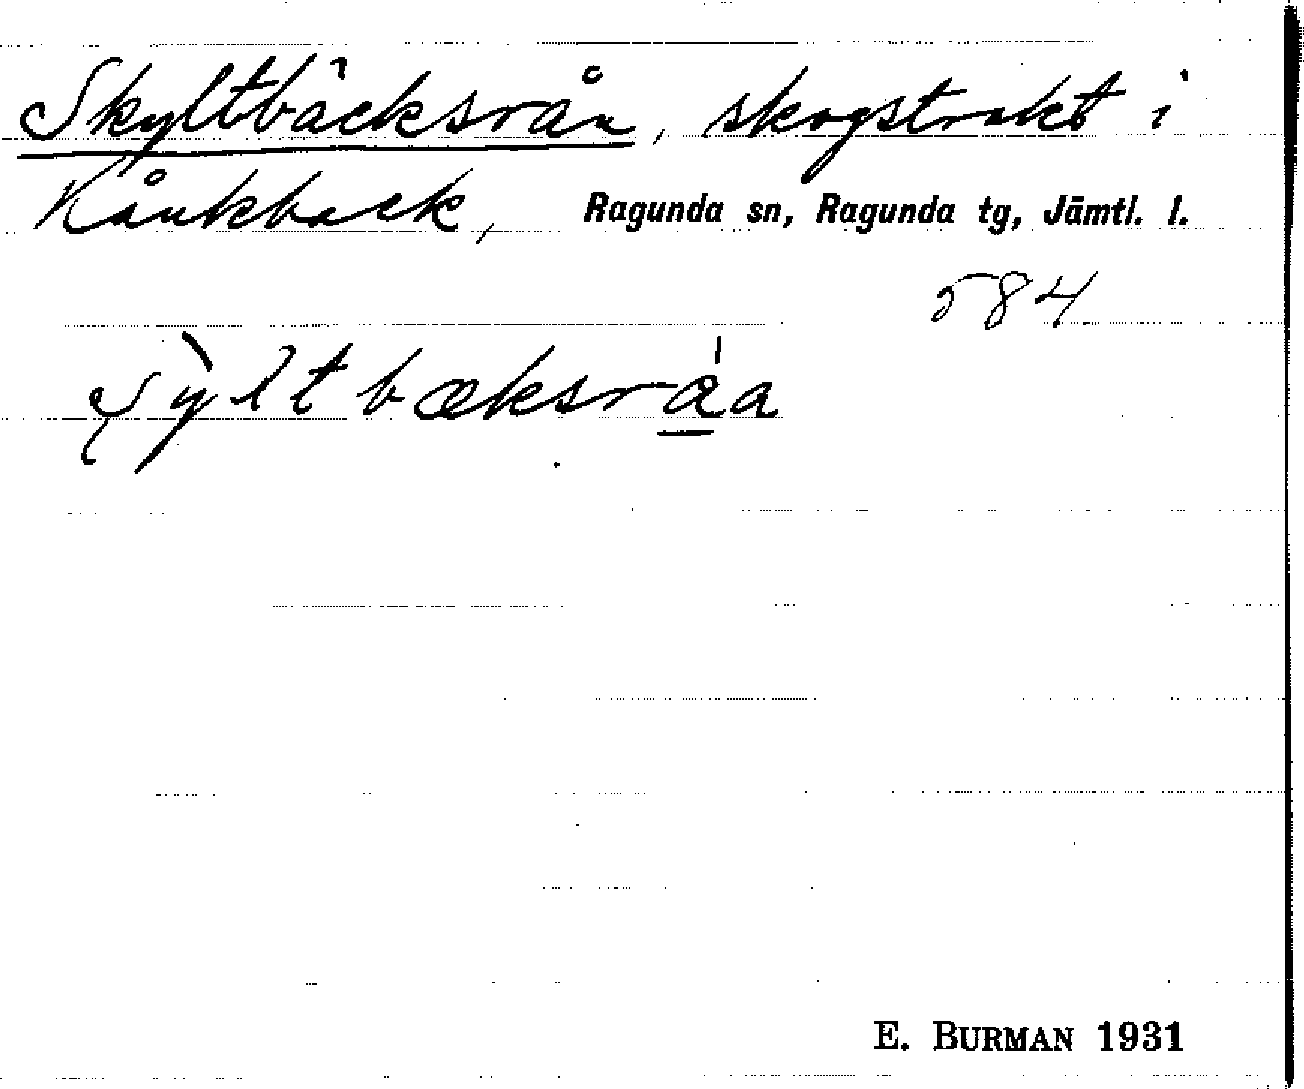 Skyltbäcksrån, skogstrakt i
Kånkback, Ragunda sn, Ragunda tg, Jämtl. l.
584
E. BURMAN 1931